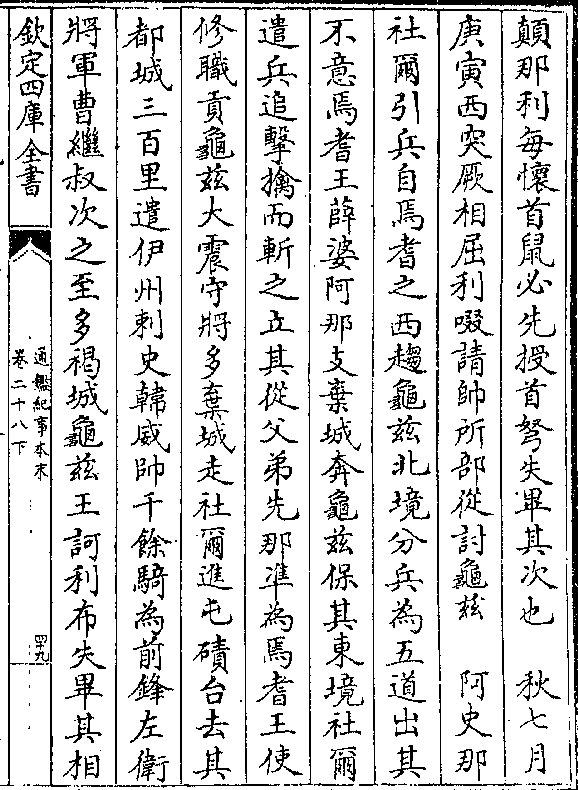 顛那利每懷首鼠必先授首弩失畢其次也　秋七月
庚寅西突厥相屈利啜請帥所部從討龜兹　阿史那
社爾引兵自焉耆之西趨龜兹北境分兵為五道出其
不意焉耆王薛婆阿那支棄城奔龜兹保其東境社爾
遣兵追擊擒而斬之立其從父弟先那準為焉耆王使
修職貢龜兹大震守將多棄城走社爾進屯磧台去其
都城三百里遣伊州刺史韓威帥千餘騎為前鋒左衛
將軍曹繼叔次之至多褐城龜兹王訶利布失畢其相
欽定四庫全書
通鑑紀事本末
卷二十八下
四十九